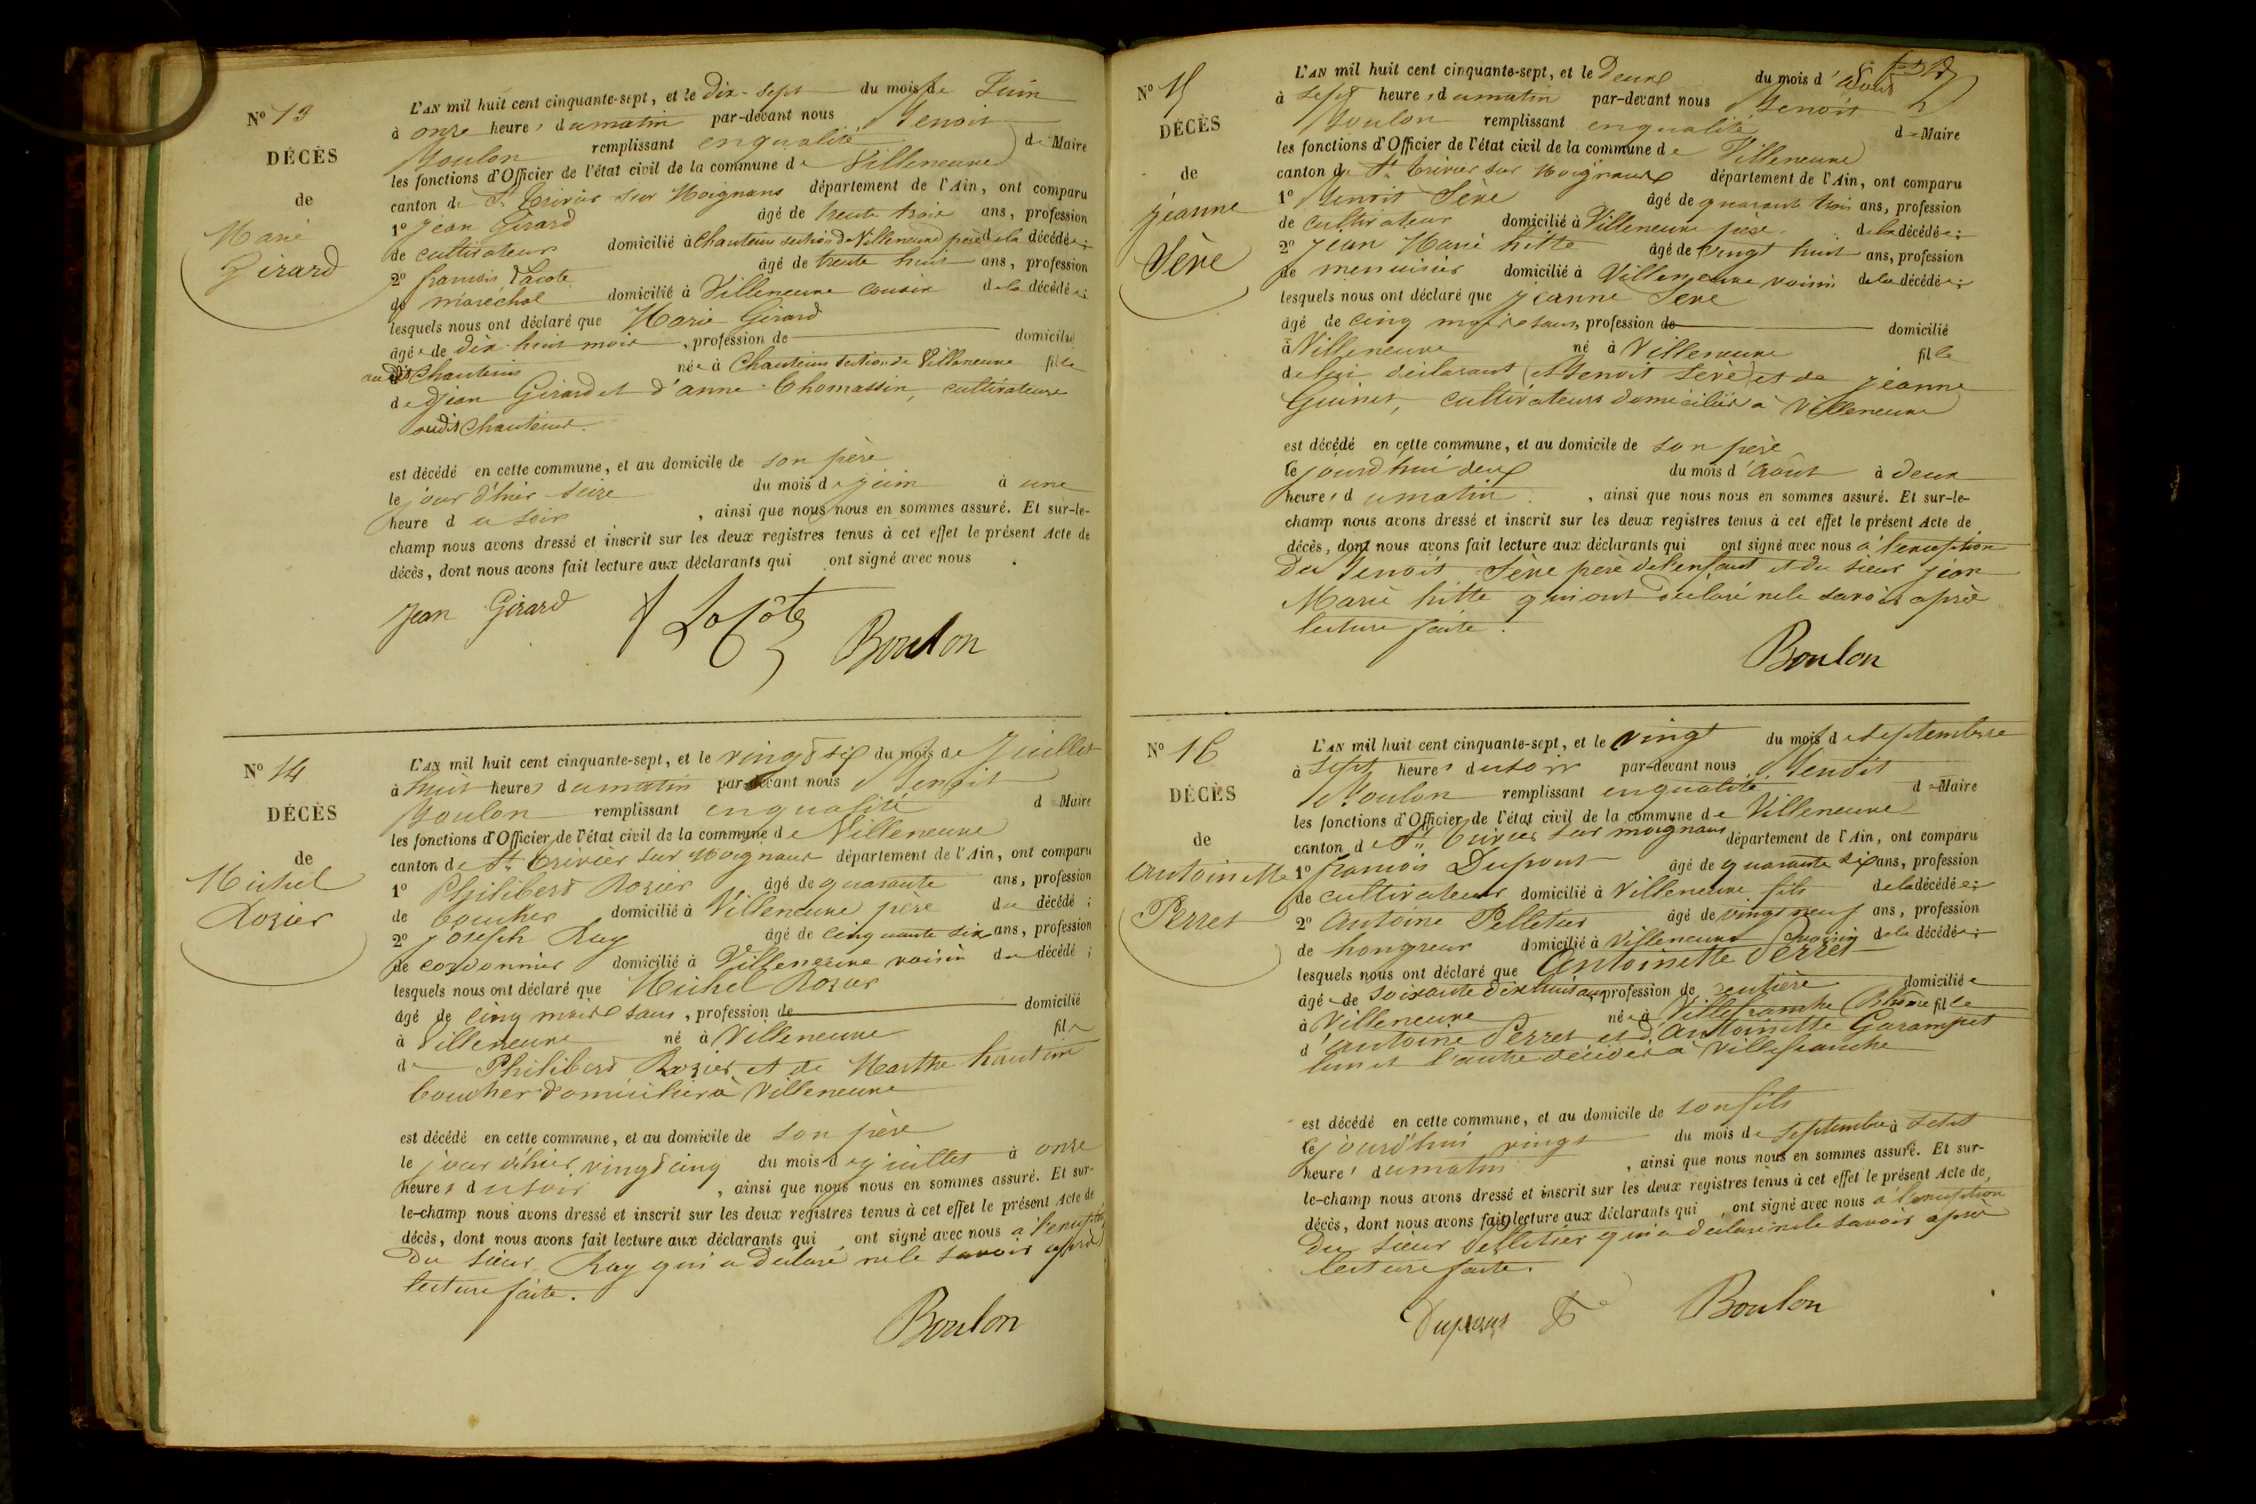 N° 13
DÉCÈS
de
Marie
Girard
L'AN mil huit cent cinquante-sept, et le dix-sept du mois de Juin
à onze heures du matin par-devant nous Benoit
Boulon remplissant en qualité de Maire
les fonctions d'Officier de l'état civil de la commune de Villeneuve
canton de St Trivier sur Moignans département de l'Ain, ont comparu
1° Jean Girard âgé de trente trois ans, profession
de cultivateur domicilié à Chanteins section de Villeneuve père de la décédée;
2° françois Lacote âgé de trente huit ans, profession
de maréchal domicilié à Villeneuve cousin de la décédée;
lesquels nous ont déclaré que Marie Girard
âgée de dix-huit mois, profession de domicilié
au dit Chanteins née à Chanteins section de Villeneuve fille
de Jean Girard et d'anne Thomassin, cultivateurs
audit Chanteins.
est décédé en cette commune, et au domicile de son père
le jour d'hier seize du mois de juin à une
heure du soir, ainsi que nous nous en sommes assuré. Et sur-le-
champ nous avons dressé et inscrit sur les deux registres tenus à cet effet le présent Acte de
décès, dont nous avons fait lecture aux déclarants qui ont signé avec nous.
Jean Girard f Lacôte Boulon
N° 14
DÉCÈS
de
Michel
Rozier
L'AN mil huit cent cinquante-sept, et le vingt six du mois de Juillet
à huit heures du matin par-devant nous Benoit
Boulon remplissant en qualité d Maire
les fonctions d'Officier de l'état civil de la commune de Villeneuve
canton de St Trivier sur Moignans département de l'Ain, ont comparu
1° Philibert Rozier âgé de quarante ans, profession
de boucher domicilié à Villeneuve père du décédé;
2° joseph Ray âgé de cinquante six ans, profession
de cordonnier domicilié à Villeneuve voisin du décédé;
lesquels nous ont déclaré que Michel Rozier
âgé de cinq mois, profession de domicilié
à Villeneuve né à Villeneuve fils
de Philibert Rozier et de Marthe
boucher domiciliés à Villeneuve
est décédé en cette commune, et au domicile de son père
le jour d'hier vingt cinq du mois de juillet à onze
heures du soir, ainsi que nous nous en sommes assuré. Et sur-
le-champ nous avons dressé et inscrit sur les deux registres tenus à cet effet le présent Acte de
décès, dont nous avons fait lecture aux déclarants qui ont signé avec nous à l'exception
du sieur Ray qui a déclaré ne le savoir après
lecture faite.
Boulon
N° 15
DÉCÈS
de
jeanne
Sève
L'AN mil huit cent cinquante-sept, et le Deux du mois d'août
à sept heures du matin par-devant nous Benoit
Boulon remplissant en qualité de Maire
les fonctions d'Officier de l'état civil de la commune de Villeneuve
canton de St Trivier sur Moignans département de l'Ain, ont comparu
1° Benoit Sève âgé de quarante trois ans, profession
de cultivateur domicilié à Villeneuve père de la décédée;
2° Jean Marie hitte âgé de vingt huit ans, profession
de menuisier domicilié à Villeneuve voisin de la décédée;
lesquels nous ont déclaré que jeanne Sève
âgé de cinq mois, profession de domicilié
à Villeneuve né à Villeneuve fille
de lui déclarant (Benoit Sève) et de jeanne
Guinet, cultivateurs domiciliés à Villeneuve
est décédé en cette commune, et au domicile de son père
le jourd'hui deux du mois d'août à deux
heures du matin, ainsi que nous nous en sommes assuré. Et sur-le-
champ nous avons dressé et inscrit sur les deux registres tenus à cet effet le présent Acte de
décès, dont nous avons fait lecture aux déclarants qui ont signé avec nous à l'exception
du Benoit Sève père de l'enfant et du sieur jean
Marie hitte qui ont déclaré ne le savoir après
lecture faite.
Boulon
N° 16
DÉCÈS
de
antoinette
Perret
L'AN mil huit cent cinquante-sept, et le vingt du mois de septembre
à sept heures du soir par-devant nous Benoit
Boulon remplissant en qualité de Maire
les fonctions d'Officier de l'état civil de la commune de Villeneuve
canton de St Trivier sur moignans département de l'Ain, ont comparu
1° françois Dupont âgé de quarante six ans, profession
de cultivateur domicilié à Villeneuve fils de la décédée;
2° antoine Pelletier âgé de vingt neuf ans, profession
de hongreur domicilié à Villeneuve voisin de la décédée;
lesquels nous ont déclaré que Antoinette Perret
âgée de soixante dix huit ans, profession de rentière domiciliée
à Villeneuve née à Villefranche Rhône fille
d'antoine Perret et d'antoinette Garampet
l'un et l'autre décédés à Villefranche
est décédé en cette commune, et au domicile de son fils
le jourd'hui vingt du mois de septembre à sept
heures du matin, ainsi que nous nous en sommes assuré. Et sur-
le-champ nous avons dressé et inscrit sur les deux registres tenus à cet effet le présent Acte de
décès, dont nous avons fait lecture aux déclarants qui ont signé avec nous à l'exception
du sieur Pelletier qui a déclaré ne le savoir après
lecture faite.
Dupont Boulon